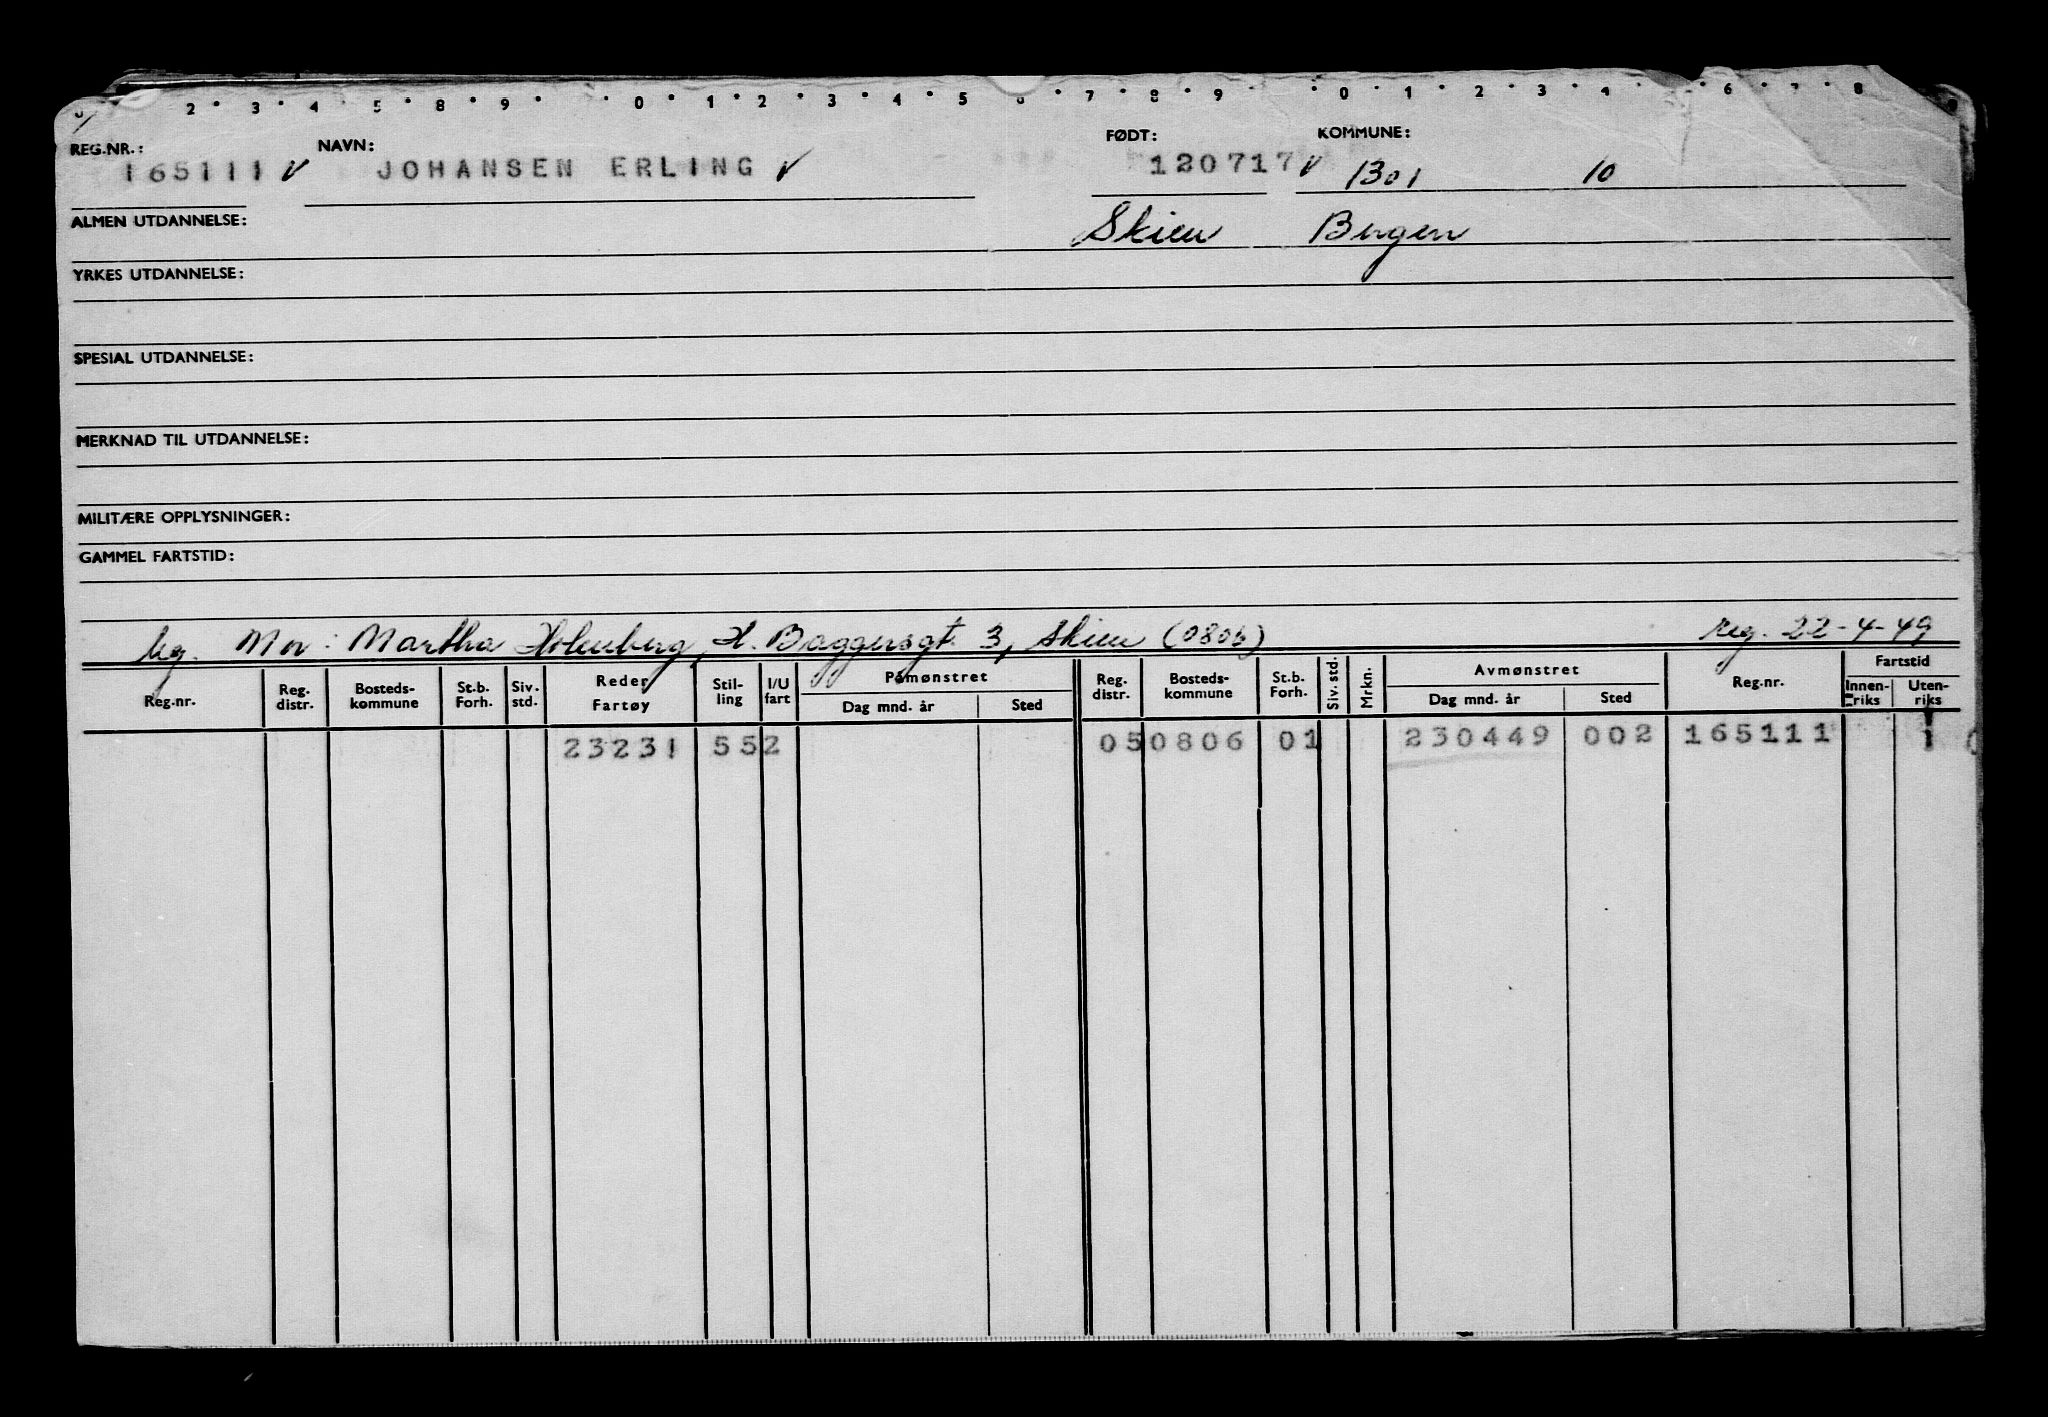 2 3 4 5 8 9 0 1 2 3 4 5 6 7 8 9 0 1 2 3 4 6 7 8 9
REG.NR.: NAVN: FØDT: KOMMUNE:
165111 V JOHANSEN ERLING V 120717 V 1301 10
ALMEN UTDANNELSE: Skien Bergen
YRKES UTDANNELSE:
SPESIAL UTDANNELSE:
MERKNAD TIL UTDANNELSE:
MILITÆRE OPPLYSNINGER:
GAMMEL FARTSTID:
Ug. Mor: Martha Holenberg, H. Baggersgt 3, Skien (0806) reg. 22-4-49
Reg.nr. Reg. distr. Bosteds- kommune St.b. Forh. Siv. std. Reder Fartøy Stil- ling I/U fart Påmønstret Dag mnd. år Sted Reg. distr. Bosteds- kommune St.b. Forh. Siv. std. Mrkn. Avmønstret Dag mnd. år Sted Reg.nr. Fartstid Innen- riks Uten- riks
23231 552 050806 01 230449 002 165111 1